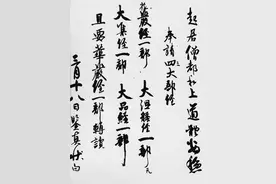 起居僧都和上道體安穩
奉請四大部經
花嚴經一部 大涅槃經一部
大集經一部 大品經一部
且要華嚴經一部轉讀
三月十八日鑒真狀白